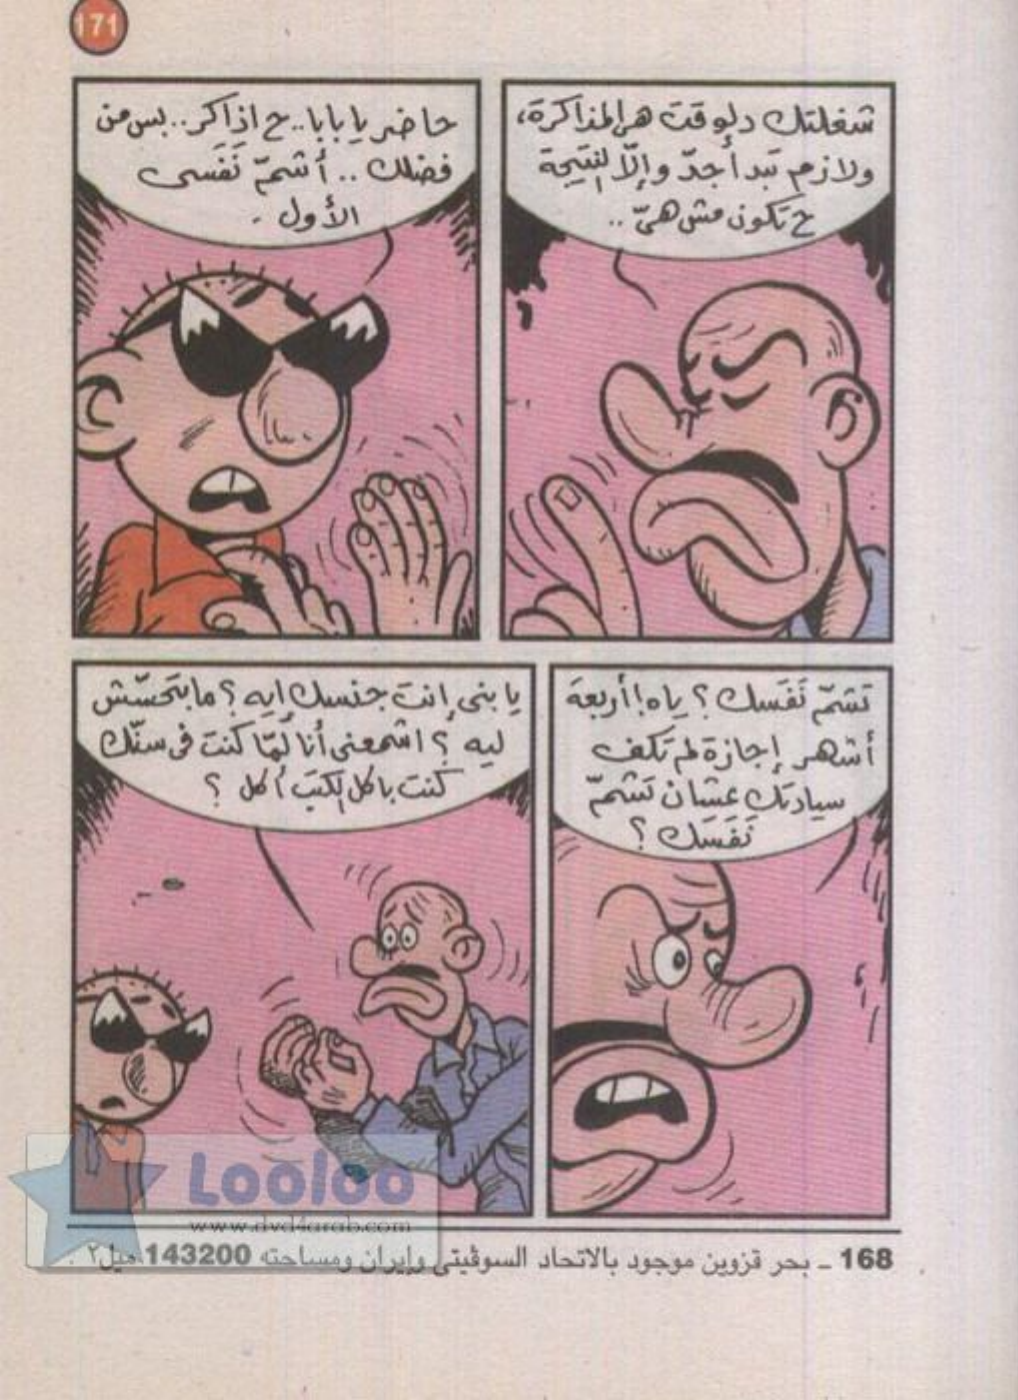 171
شغلتك دلوقت هى المذاكرة،
ولازم تبدأ جدّ وإلّا النتيجة
ح تكون مش هىّ ..
حاضر يا بابا.. ح اذاكر.. بس من
فضلك .. أشمّ نَفَسى
الأول .
تشمّ نَفَسك ؟ ياه! أربعة
أشهر إجازة لم تكف
سيادتك عشان تشمّ
نَفَسك ؟
يا بنى إنت جنسك ايه ؟ ما بتحسّش
ليه ؟ اشمعنى أنا لمّا كنت فى سنّك
كنت باكل الكتب أكل ؟
Looloo
www.dvd4arab.com
168 ـ بحر قزوين موجود بالاتحاد السوڤيتى وإيران ومساحته 143200 ميل٢ .